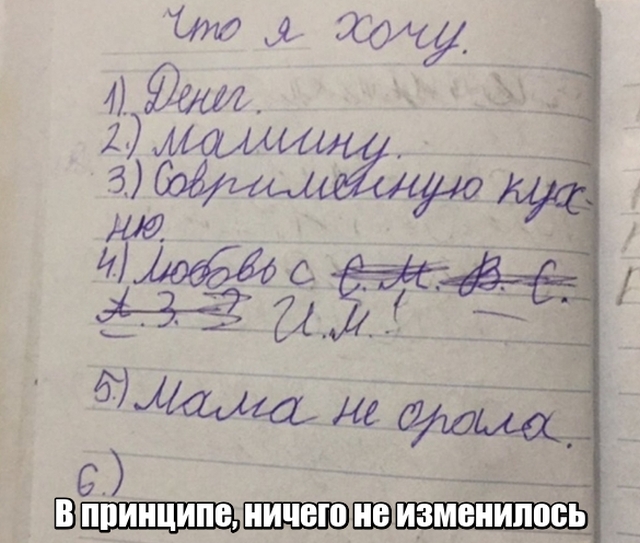 Что я хочу.
1). Денег.
2.) Машину.
3.) Совримённую кух-
ню.
4.) Любовь с С. М. В. С.
А. З. И. М.!
5.) Мама не орала.
6.)
В принципе, ничего не изменилось